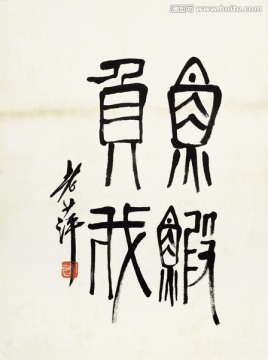 魚鰕
負我
老萍
www.huitu.com